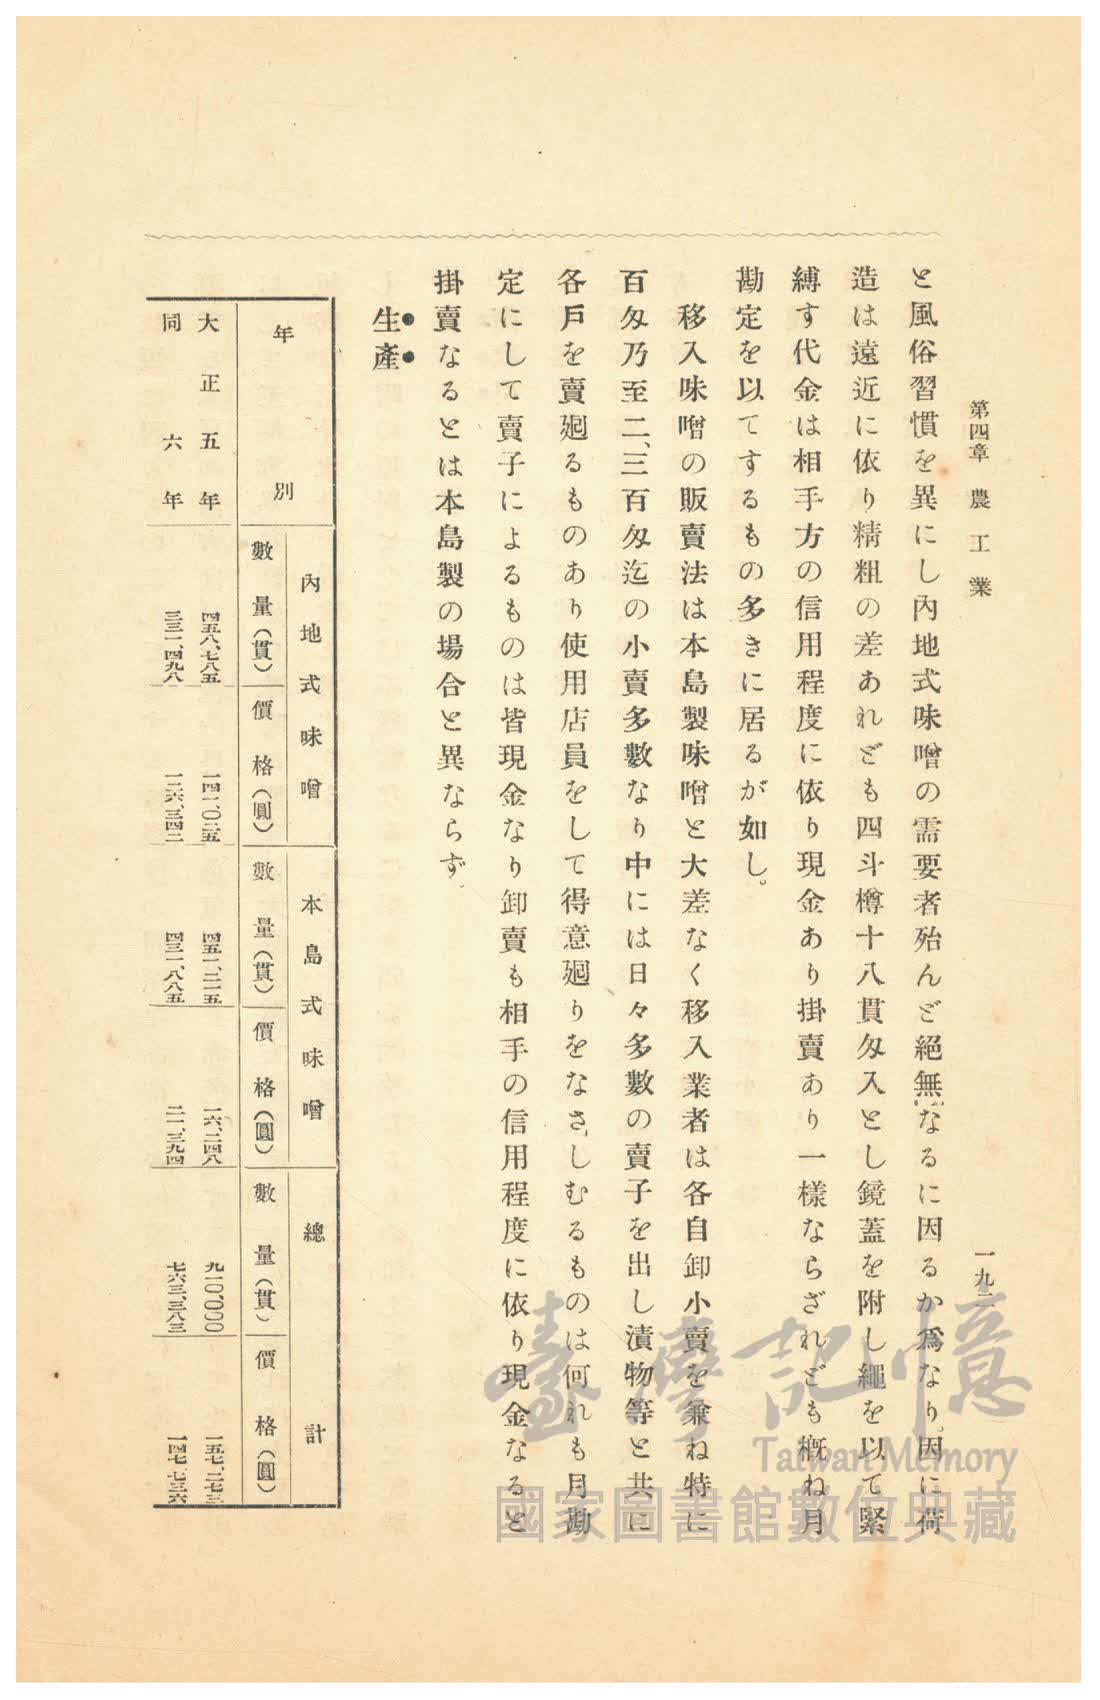 第四章 農工業 一九二
と風俗習慣を異にし內地式味噌の需要者殆んど絕無なるに因るか爲なり。因に荷
造は遠近に依り精粗の差あれども四斗樽十八貫匁入とし鏡蓋を附し繩を以て緊
縛す代金は相手方の信用程度に依り現金あり掛賣あり一樣ならざれども槪ね月
勘定を以てするもの多きに居るが如し。
移入味噌の販賣法は本島製味噌と大差なく移入業者は各自卸小賣を兼ね特に
百匁乃至二、三百匁迄の小賣多數なり中には日々多數の賣子を出し漬物等と共に
各戶を賣廻るものあり使用店員をして得意廻りをなさしむるものは何れも月勘
定にして賣子によるものは皆現金なり卸賣も相手の信用程度に依り現金なると
掛賣なるとは本島製の場合と異ならず。
生產
年別 內地式味噌 本島式味噌 總計
數量(貫) 價格(圓) 數量(貫) 價格(圓) 數量(貫) 價格(圓)
大正五年 四五八、七八五 一四一、〇二五 四五一、二一五 一六、二四八 九一〇、〇〇〇 一五七、二七三
同六年 三三一、四九八 一二六、三四二 四三一、八八五 二一、三九四 七六三、三八三 一四七、七三六
臺灣記憶
Taiwan Memory
國家圖書館數位典藏